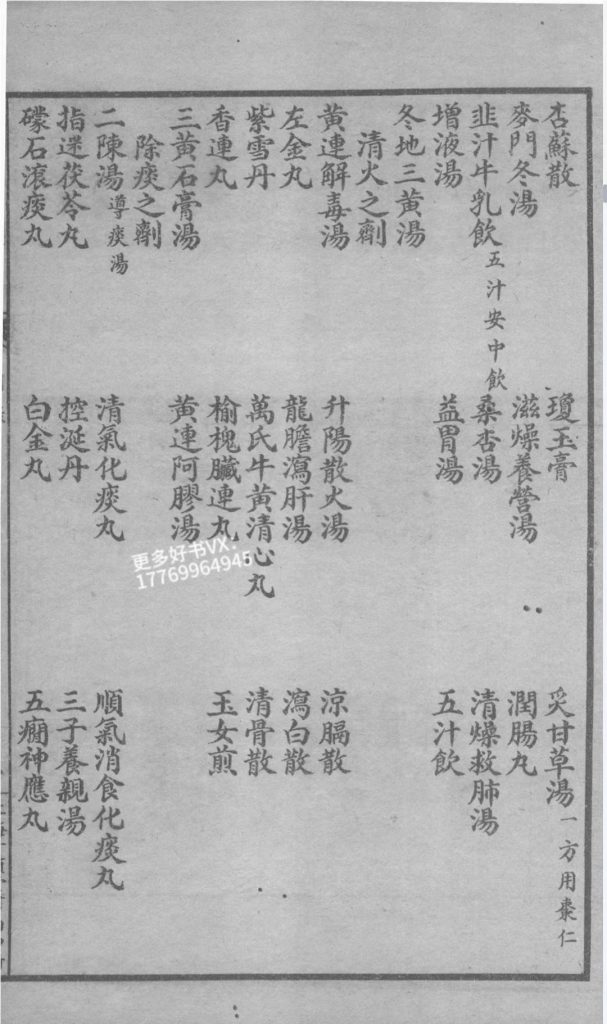 杏蘇散 瓊玉膏 炙甘草湯一方用棗仁
麥門冬湯 滋燥養營湯 潤腸丸
韭汁牛乳飲五汁安中飲 桑杏湯 清燥救肺湯
增液湯 益胃湯 五汁飲
冬地三黃湯
清火之劑
黃連解毒湯 升陽散火湯 涼膈散
左金丸 龍膽瀉肝湯 瀉白散
紫雪丹 萬氏牛黃清心丸 清骨散
香連丸 榆槐臟連丸 玉女煎
三黃石膏湯 黃連阿膠湯
除痰之劑
二陳湯導痰湯 清氣化痰丸 順氣消食化痰丸
指迷茯苓丸 控涎丹 三子養親湯
礞石滾痰丸 白金丸 五癎神應丸
更多好书VX:
17769964945